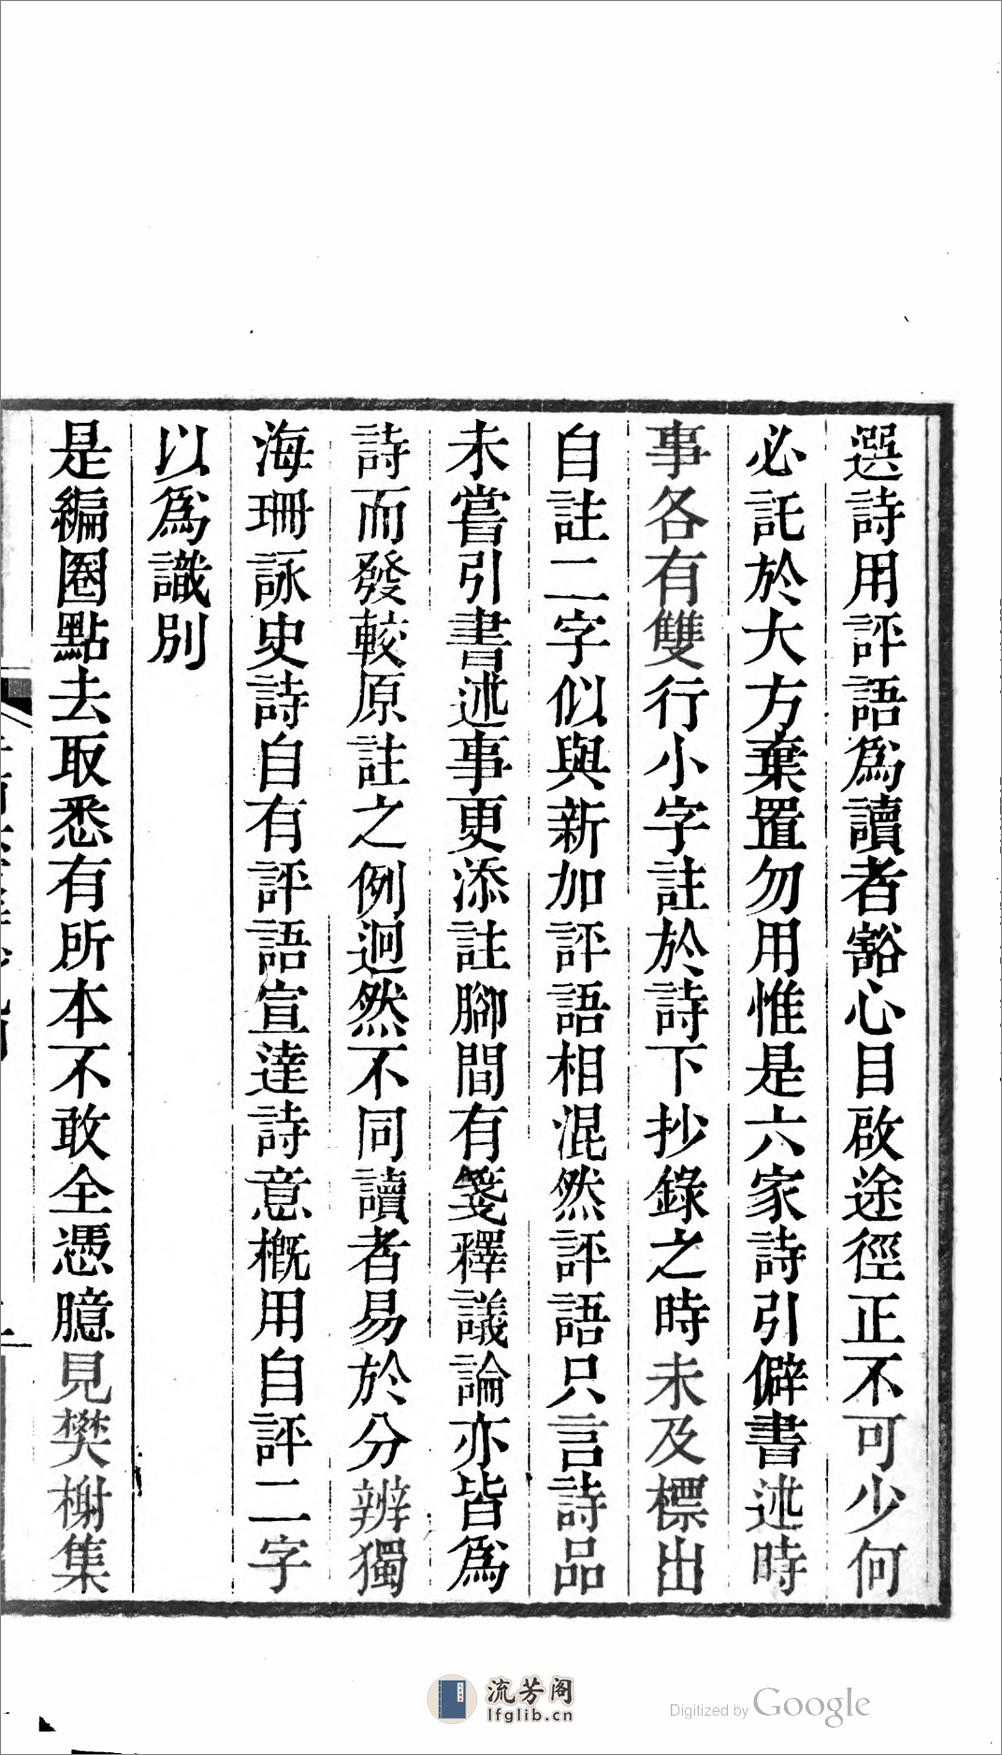 選詩用評語爲讀者豁心目啟途徑正不可少何
必託於大方棄置勿用惟是六家詩引僻書述時
事各有雙行小字註於詩下抄錄之時未及標出
自註二字似與新加評語相混然評語只言詩品
未嘗引書述事更添註腳間有箋釋議論亦皆爲
詩而發較原註之例迥然不同讀者易於分辨獨
海珊詠史詩自有評語宣達詩意概用自評二字
以爲識別
是編圈點去取悉有所本不敢全憑臆見樊榭集
流芳阁
lfglib.cn
Digitized by Google